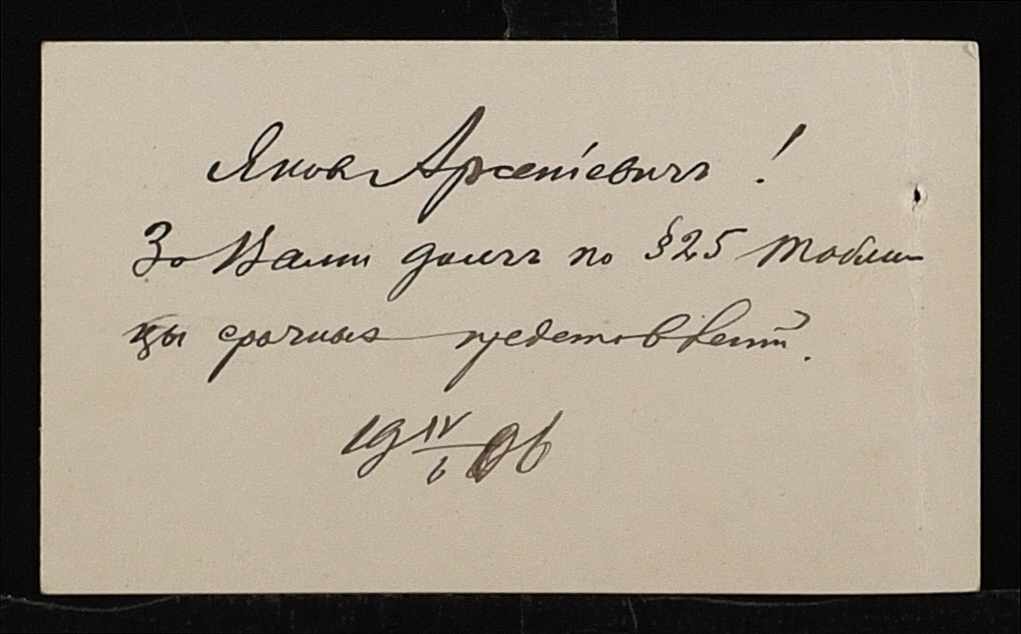 Яковъ Арсеніевичъ!
За Вами долгъ по § 25 табли
цы срочныхъ представленій.
19 IV/6 06